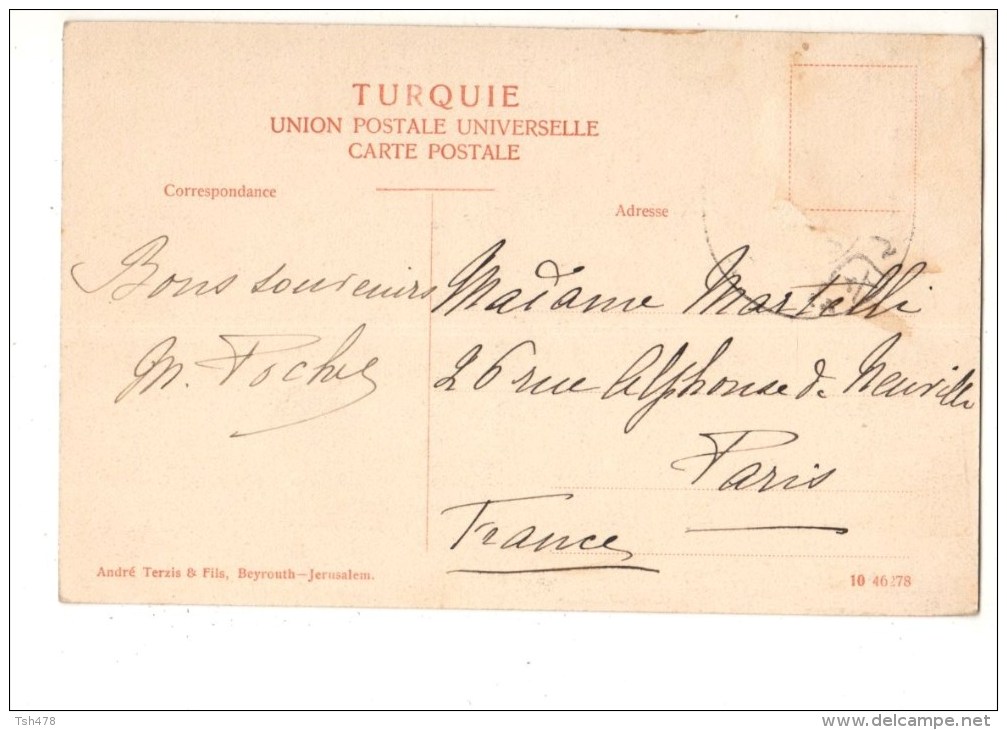 TURQUIE
UNION POSTALE UNIVERSELLE
CARTE POSTALE
Correspondance
Adresse
Bons souvenirs
M. Poche
Madame Martelli
26 rue Alphonse de Neuville
Paris
France
André Terzis & Fils, Beyrouth—Jerusalem.
10 46278
Tsh478
www.delcampe.net